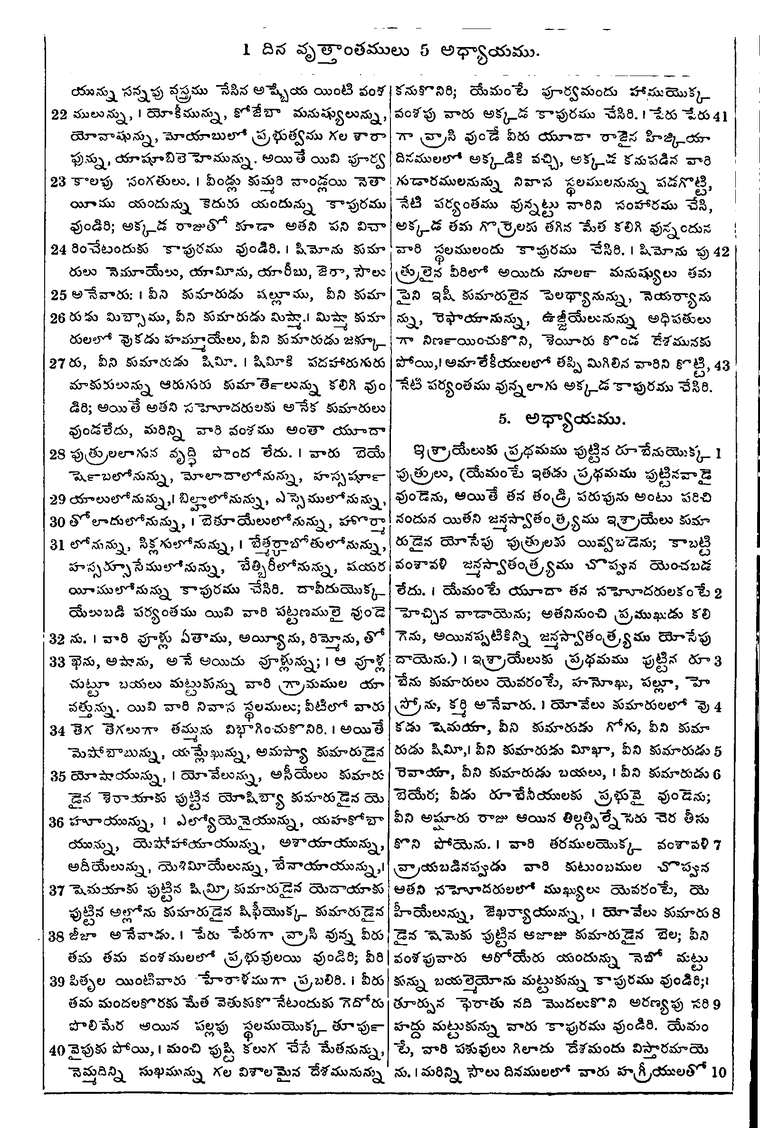 1 దిన వృత్తాంతములు 5 అధ్యాయము.
యున్ను సన్నపు వస్త్రము నేసిన అష్బేయ యింటి వంశ
22 ములున్ను, । యోకీమున్ను, కోజేబా మనుష్యులున్ను,
యోవాషున్ను, మోయాబులో ప్రభుత్వము గల శారా
ఫున్ను, యాషూబిలెహెమున్ను. అయితే యివి పూర్వ
23 కాలపు సంగతులు. । వీండ్లు కుమ్మరి వాండ్లయి నెతా
యీము యందున్ను కెదురు యందున్ను కాపురము
వుండిరి; అక్కడ రాజుతో కూడా అతని పని విచా
24 రించేటందుకు కాపురము వుండిరి. । షిమోను కుమా
రులు నెమూయేలు, యామీను, యారీబు, జెరా, సౌలు
25 అనేవారు: । వీని కుమారుడు షల్లూము, వీని కుమా
26 రుడు మిబ్సాము, వీని కుమారుడు మిష్మా.। మిష్మా కుమా
రులలో వొకడు హమ్మూయేలు, వీని కుమారుడు జక్కూ
27 రు, వీని కుమారుడు షిమీ. । షిమీకి పదహారుగురు
మాకురులున్ను ఆరుగురు కుమార్తెలున్ను కలిగి వుం
డిరి; అయితే అతని సహోదరులకు అనేక కుమారులు
వుండలేదు, మరిన్ని వారి వంశము అంతా యూదా
28 పుత్రులలాగున వృద్ధి పొంద లేదు. । వారు బెయే
షెర్బలోనున్ను, మోలాదాలోనున్ను, హస్సర్షూ
29 యాలులోనున్ను,। బిల్హాలోనున్ను, ఎస్సెములోనున్ను,
30 తోలాదులోనున్ను, । బెతూయేలులోనున్ను, హోర్మా
31 లోనున్ను, సిక్లగులోనున్ను, । బేత్మర్కాబోతులోనున్ను,
హస్సర్సూసేములోనున్ను, బేత్బిరీలోనున్ను, షయర
యీములోనున్ను కాపురము చేసిరి. దావీదుయొక్క
యేలుబడి పర్యంతము యివి వారి పట్టణములై వుండె
32 ను. । వారి వూళ్లు ఏతాము, అయ్యీను, రిమ్మోను, తో
33 ఖెను, అషాను, అనే అయిదు వూళ్లున్ను; । ఆ వూళ్ల
చుట్టూ బయలు మట్టుకున్ను వారి గ్రామముల యా
వత్తున్ను. యివి వారి నివాస స్థలములు; వీటిలో వారు
34 తెగ తెగలుగా తమ్మును విభాగించుకొనిరి. । అయితే
మెషోబాబున్ను, యమ్లేఖున్ను, అమస్యా కుమారుడైన
35 యోషాయున్ను, । యోవేలున్ను, అసీయేలు కుమారు
డైన శెరాయాకు పుట్టిన యోషిబ్యా కుమారుడైన యె
36 హూయున్ను, । ఎల్యోయెనైయున్ను, యహకోబా
యున్ను, యెషోహాయాయున్ను, అశాయాయున్ను,
అదీయేలున్ను, యెశిమీయేలున్ను, బేనాయాయున్ను,।
37 షెమయాకు పుట్టిన షిమ్రీ కుమారుడైన యెదాయాకు
పుట్టిన అల్లోను కుమారుడైన షిఫీయొక్క కుమారుడైన
38 జీజా అనేవాడు. । పేరు పేరుగా వ్రాసి వున్న వీరు
తమ తమ వంశములలో ప్రభువులయి వుండిరి; వీరి
39 పితృల యింటివారు హేరాళముగా ప్రబలిరి. । వీరు
తమ మందలకొరకు మేత వెతుకుకొనేటందుకు గెదోరు
పొలిమేర అయిన పల్లపు స్థలముయొక్క తూర్పు
40 వైపుకు పోయి, । మంచి పుష్టి కలుగ చేసే మేతనున్ను,
నెమ్మదిన్ని సుఖమున్ను గల విశాలమైన దేశమునున్ను
కనుకొనిరి; యేమంటే పూర్వమందు హాముయొక్క
వంశపు వారు అక్కడ కాపురము చేసిరి. । పేరు పేరు 41
గా వ్రాసి వుండే వీరు యూదా రాజైన హిజ్కియా
దినములలో అక్కడికి వచ్చి, అక్కడ కనుపడిన వారి
గుడారములనున్ను నివాస స్థలములనున్ను పడగొట్టి,
నేటి పర్యంతము వున్నట్టు వారిని సంహారము చేసి,
అక్కడ తమ గొర్రెలకు తగిన మేత కలిగి వున్నందున
వారి స్థలములందు కాపురము చేసిరి. । షిమోను పు 42
త్రులైన వీరిలో అయిదు నూలర్ మనుష్యులు తమ
పైని ఇషీ కుమారులైన పెలథ్యానున్ను, నెయర్యాను
న్ను, రెఫాయానున్ను, ఉజ్జీయేలునున్ను అధిపతులు
గా నిర్ణయించుకొని, శెయీరు కొండ దేశమునకు
పోయి,। అమాలేకీయులలో తప్పి మిగిలిన వారిని కొట్టి, 43
నేటి పర్యంతము వున్నలాగు అక్కడ కాపురము చేసిరి.
5. అధ్యాయము.
ఇశ్రాయేలుకు ప్రథమము పుట్టిన రూబేనుయొక్క 1
పుత్రులు, (యేమంటే ఇతడు ప్రథమము పుట్టినవాడై
వుండెను, అయితే తన తండ్రి పరుపును అంటు పరిచి
నందున యితని జన్మస్వాతంత్ర్యము ఇశ్రాయేలు కుమా
రుడైన యోసేపు పుత్రులకు యివ్వబడెను; కాబట్టి
వంశావళి జన్మస్వాతంత్ర్యము చొప్పున యెంచబడ
లేదు. । యేమంటే యూదా తన సహోదరులకంటే 2
హెచ్చిన వాడాయెను; అతనినుంచి ప్రముఖుడు కలి
గెను, అయినప్పటికిన్ని జన్మస్వాతంత్ర్యము యోసేపు
దాయెను.) । ఇశ్రాయేలుకు ప్రథమము పుట్టిన రూ 3
బేను కుమారులు యెవరంటే, హనోఖు, పల్లూ, హె
స్రోను, కర్మి అనేవారు. । యోవేలు కుమారులలో వొ 4
కడు షెమయా, వీని కుమారుడు గోగు, వీని కుమా
రుడు షిమీ,। వీని కుమారుడు మీఖా, వీని కుమారుడు 5
రెవాయా, వీని కుమారుడు బయలు, । వీని కుమారుడు 6
బెయేర; వీడు రూబేనీయులకు ప్రభువై వుండెను;
వీని అష్షూరు రాజు అయిన తిల్గత్పిల్నేసెరు చెర తీసు
కొని పోయెను. । వారి తరములయొక్క వంశావళి 7
వ్రాయబడినప్పుడు వారి కుటుంబముల చొప్పున
అతని సహోదరులలో ముఖ్యులు యెవరంటే, యె
హీయేలున్ను, జెఖర్యాయున్ను, । యోవేలు కుమారు 8
డైన షెమెకు పుట్టిన అజాజు కుమారుడైన బెల; వీని
వంశపువారు ఆరోయేరు యందున్ను నెబో మట్టు
కున్ను బయల్మెయోను మట్టుకున్ను కాపురము వుండిరి;।
తూర్పున ఫెరాతు నది మొదలుకొని అరణ్యపు సరి 9
హద్దు మట్టుకున్ను వారు కాపురము వుండిరి. యేమం
టే, వారి పశువులు గిలాదు దేశమందు విస్తారమాయె
ను. । మరిన్ని సౌలు దినములలో వారు హగ్రీయులతో 10